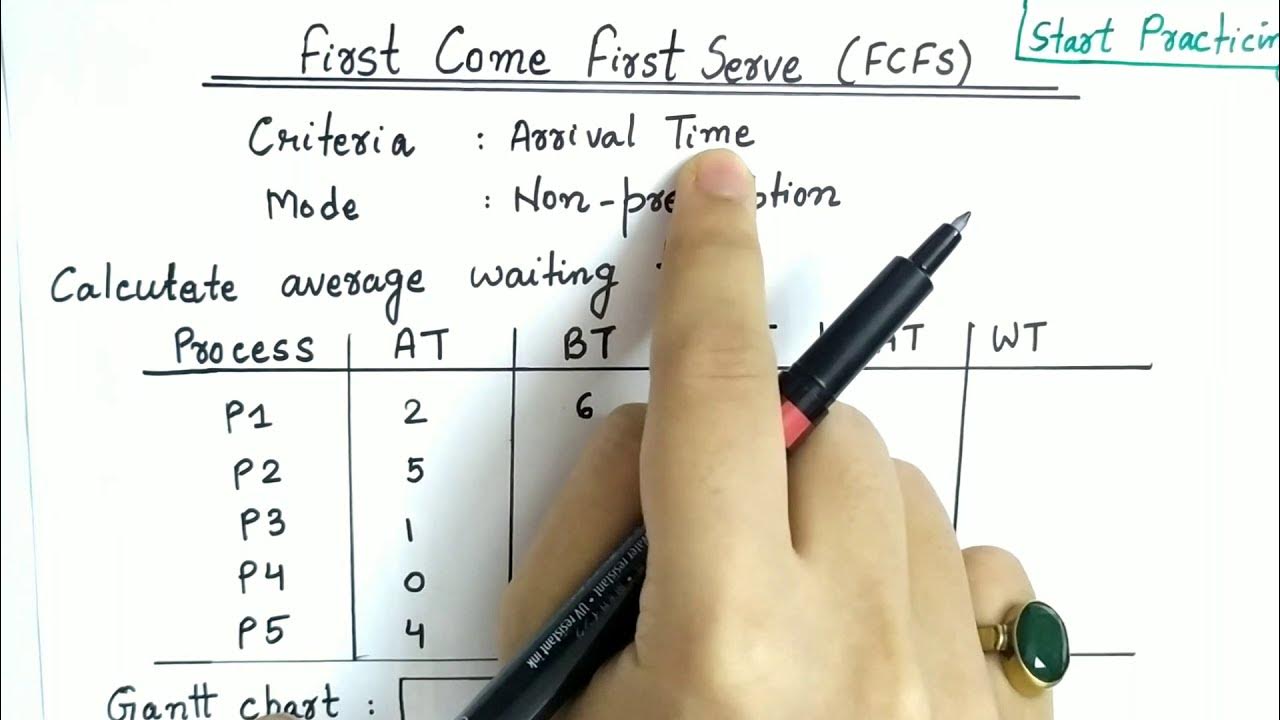 First Come First Serve (FCFS)
Start Practicin
Criteria : Arrival Time
Mode : Non-pre ption
Calculate average waiting
Process AT BT AT WT
P1 2 6
P2 5
P3 1
P4 0
P5 4
water resistant • UV resistant ink
Gantt chart :